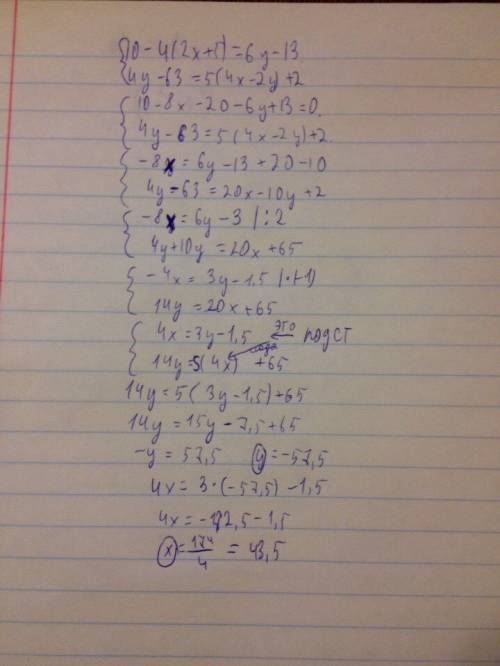 {10-4(2x+5)=6y-13
{4y-63=5(4x-2y)+2
{10-8x-20-6y+13=0
4y-63=5(4x-2y)+2
{-8x=6y-13+20-10
4y-63=20x-10y+2
{-8x=6y-3 /:2
4y+10y=20x+65
{-4x=3y-1,5 /·(-1)
14y=20x+65
{4x=3y-1,5 ← это подст
14y=5(4x)+65 сюда
14y=5(3y-1,5)+65
14y=15y-7,5+65
-y=57,5 y=-57,5
4x=3·(-57,5)-1,5
4x=-172,5-1,5
x=174/4=43,5